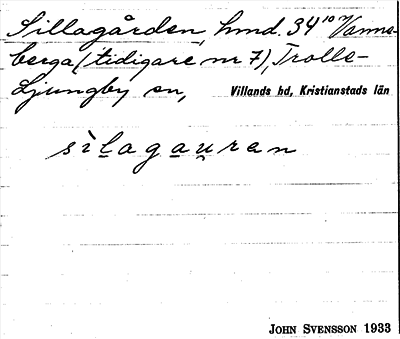 Sillagården, hmd. 34¹⁰ Vanne-
berga (tidigare nr 7), Trolle-
Ljungby sn, Villands hd, Kristianstads län
sìlagau̯ren
JOHN SVENSSON 1933